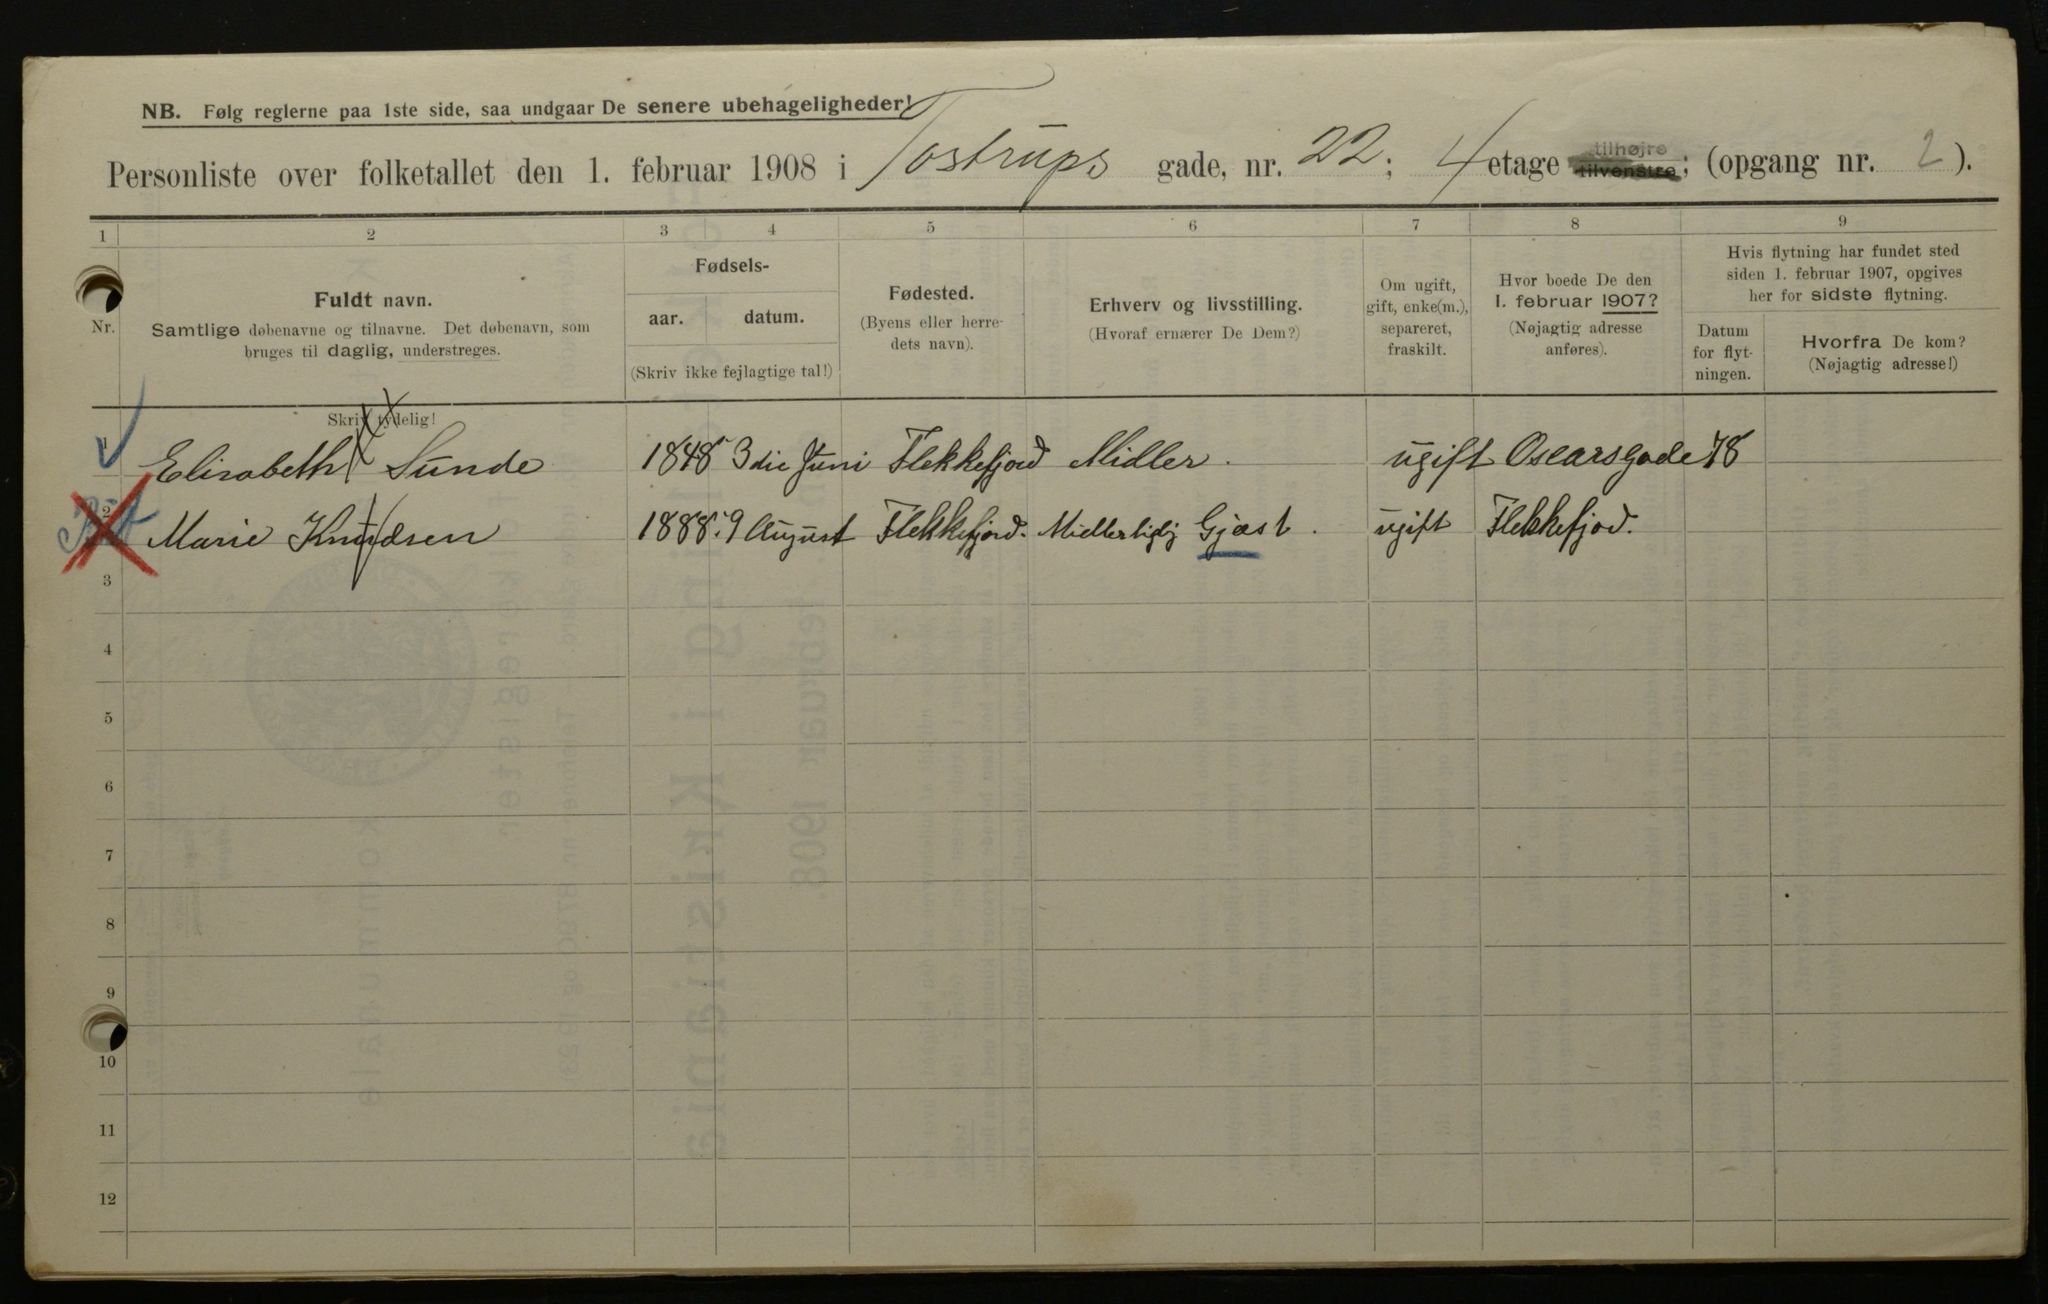 NB. Følg reglerne paa 1ste side, saa undgaar De senere ubehageligheder!
Personliste over folketallet den 1. februar 1908 i Tostrups gade, nr. 22; 4 etage tilhøjre tilvenstre; (opgang nr. 2).
1 2 3 4 5 6 7 8 9
Nr.
Fuldt navn.
Samtlige døbenavne og tilnavne. Det døbenavn, som
bruges til daglig, understreges.
Skriv tydelig!
Fødsels-
aar. datum.
(Skriv ikke fejlagtige tal!)
Fødested.
(Byens eller herre-
dets navn).
Erhverv og livsstilling.
(Hvoraf ernærer De Dem?)
Om ugift,
gift, enke(m.),
separeret,
fraskilt.
Hvor boede De den
1. februar 1907?
(Nøjagtig adresse
anføres).
Hvis flytning har fundet sted
siden 1. februar 1907, opgives
her for sidste flytning.
Datum
for flyt-
ningen.
Hvorfra De kom?
(Nøjagtig adresse!)
Elisabeth Sunde 1848 3die Juni Flekkefjord Midler. ugift Oscarsgade 78
2 Marie Knudsen 1888. 9 August Flekkefjord. Gjæst. ugift Flekkefjod.
3
4
5
6
7
8
9
10
11
12